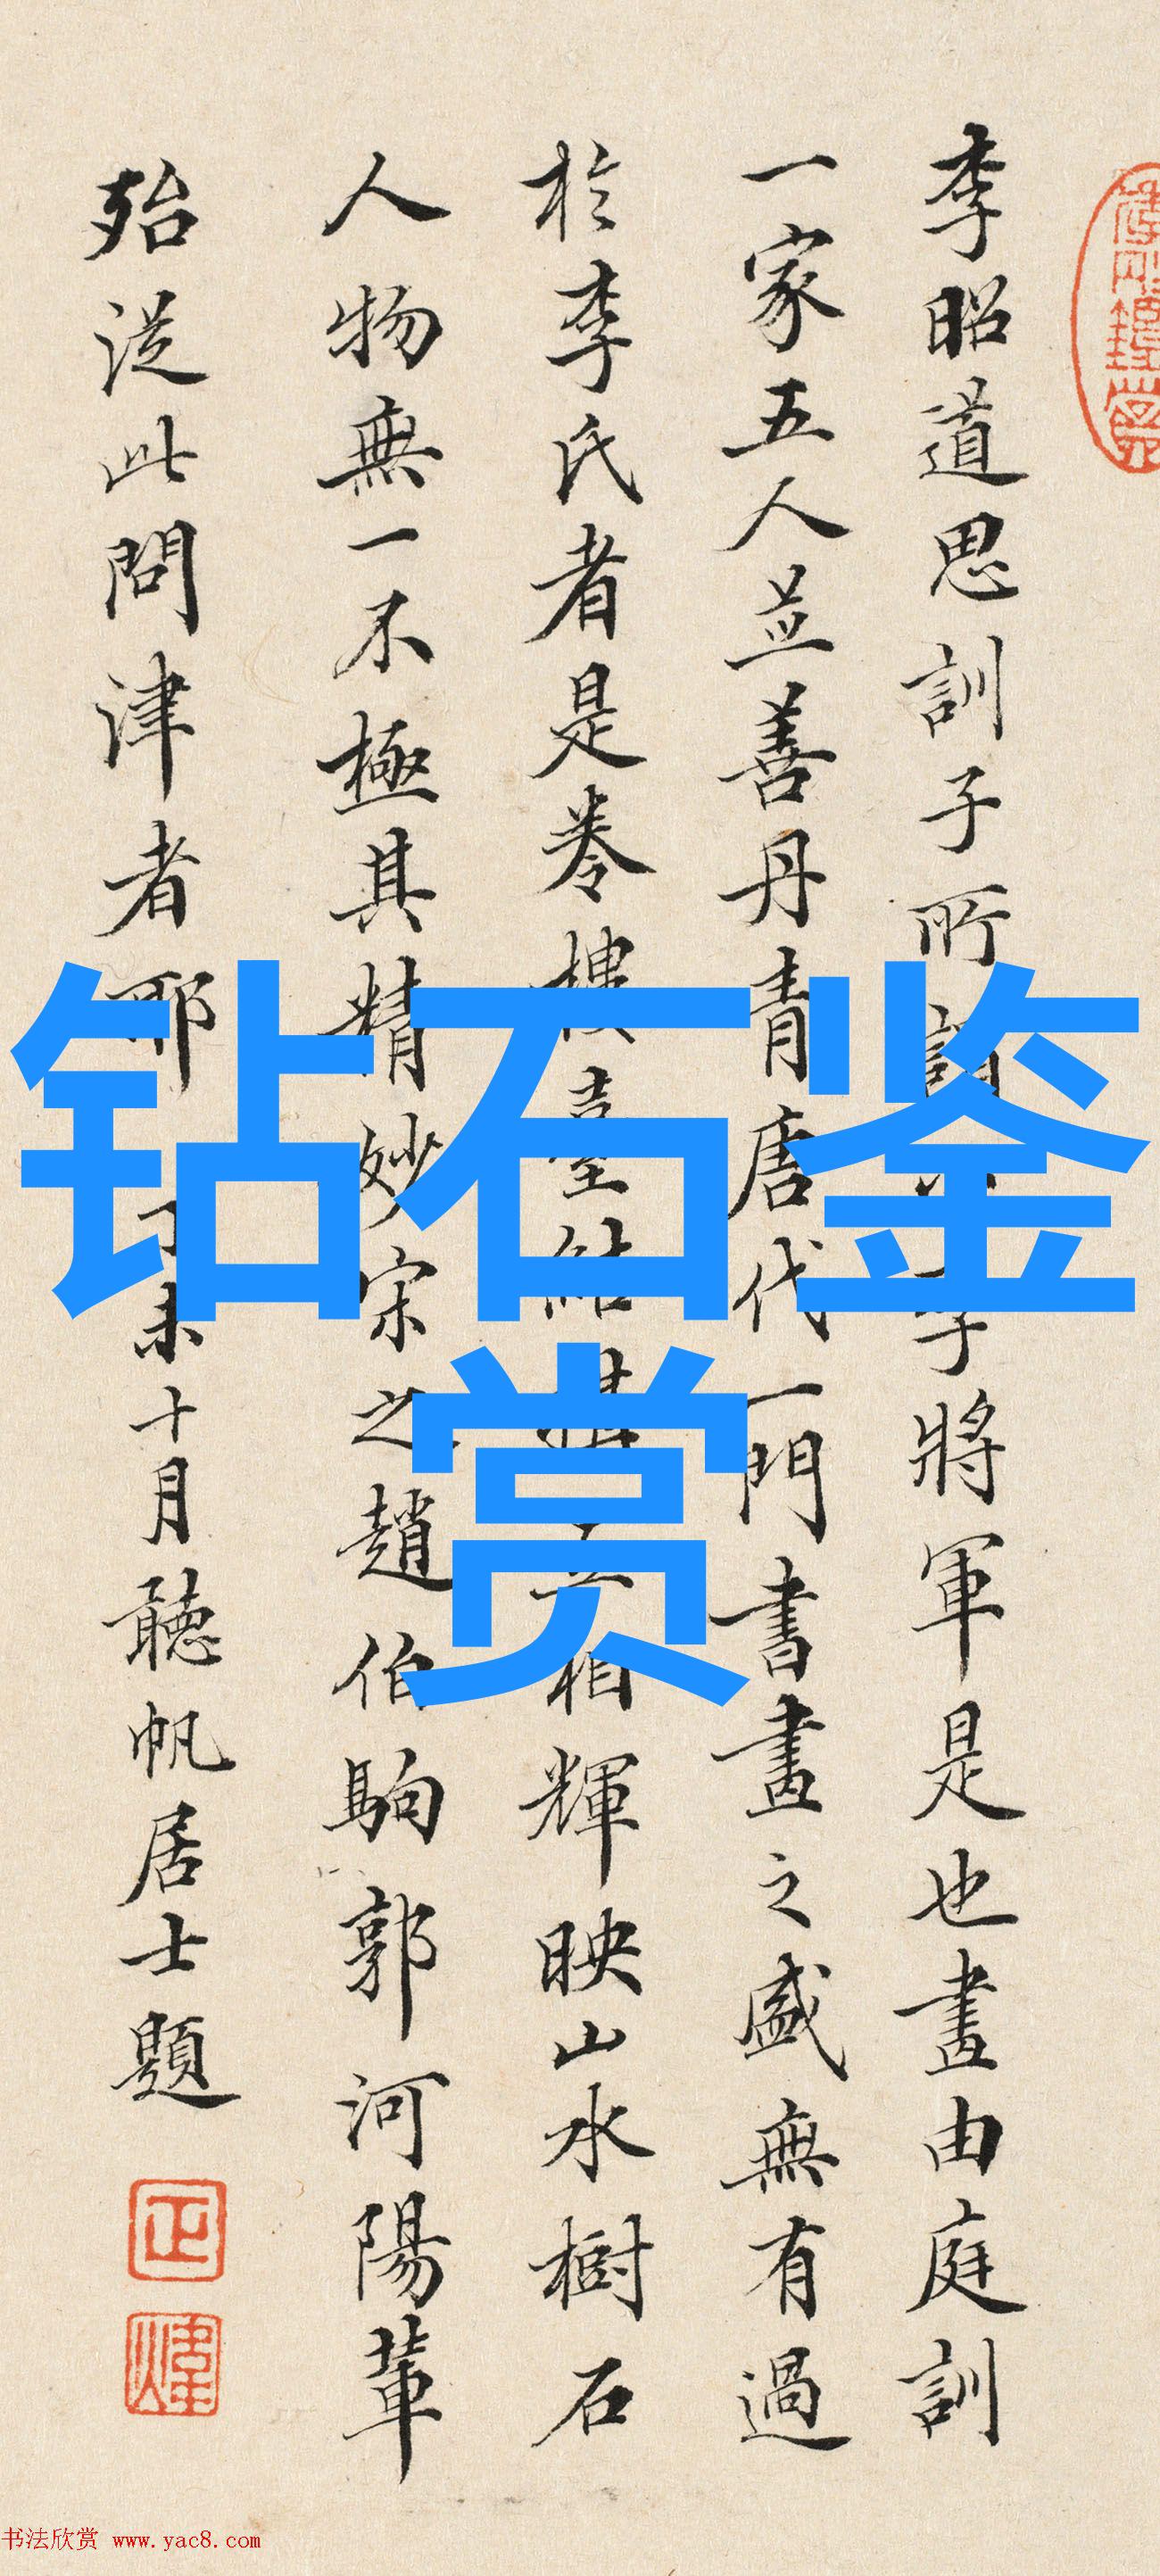 李昭道思訓子所謂小李將軍是也畫由庭訓
一家五人並善丹青唐代一門書畫之盛無有過
於李氏者是卷樓臺結構互相輝映山水樹石
人物無一不極其精妙宋之趙伯駒郭河陽輩
殆從此問津者耶 丁未十月聽帆居士題
正
煒
钻石鉴
赏
书法欣赏 www.yac8.com